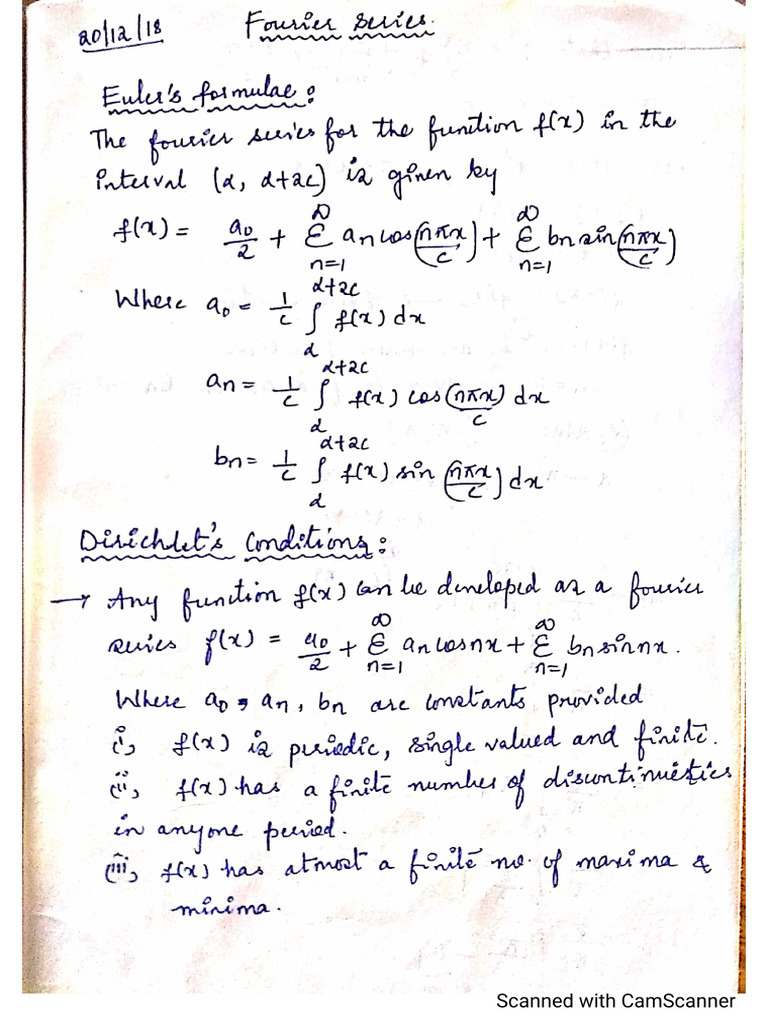 20/12/18
Fourier series.
Euler's formulae:
The fourier series for the function f(x) in the
interval (α, α+2c) is given by
f(x) = a0/2 + Σ_{n=1}^{∞} an cos(nπx/c) + Σ_{n=1}^{∞} bn sin(nπx/c)
Where a0 = 1/c ∫_{α}^{α+2c} f(x) dx
an = 1/c ∫_{α}^{α+2c} f(x) cos(nπx/c) dx
bn = 1/c ∫_{α}^{α+2c} f(x) sin(nπx/c) dx
Dirichlet's Conditions:
→ Any function f(x) can be developed as a fourier
series f(x) = a0/2 + Σ_{n=1}^{∞} an cosnx + Σ_{n=1}^{∞} bn sinnx.
Where a0, an, bn are constants provided
(i), f(x) is periodic, single valued and finite.
(ii), f(x) has a finite number of discontinueties
in anyone period.
(iii), f(x) has atmost a finite no. of maxima &
minima.
Scanned with CamScanner